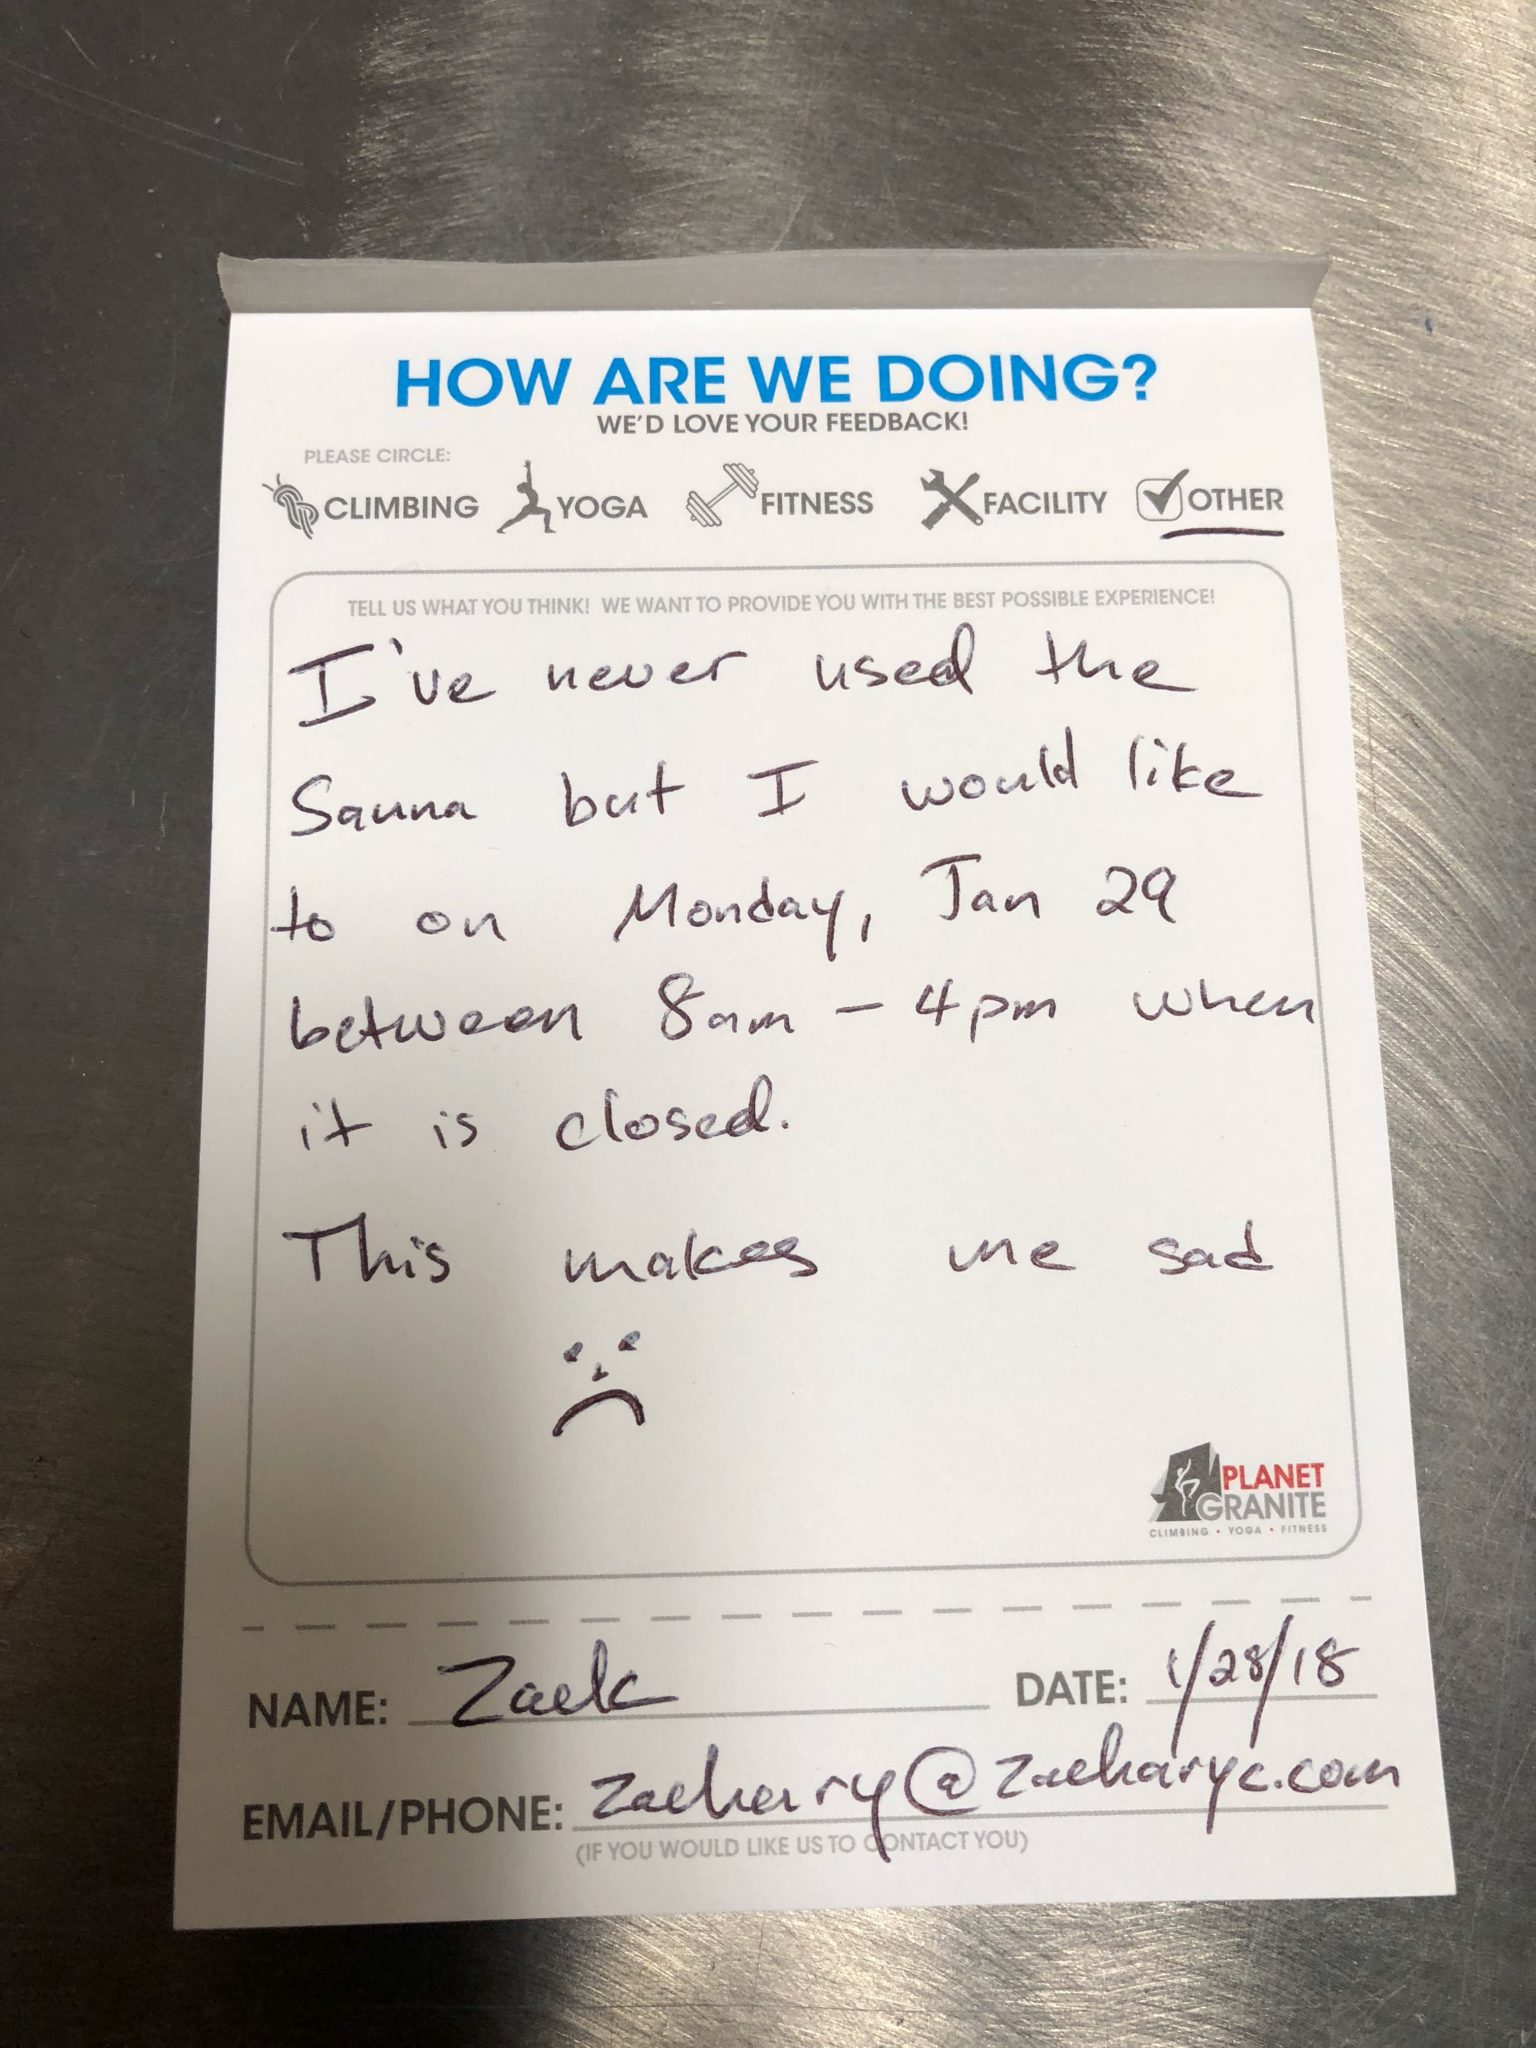 HOW ARE WE DOING?
WE'D LOVE YOUR FEEDBACK!
PLEASE CIRCLE:
CLIMBING YOGA FITNESS FACILITY OTHER
TELL US WHAT YOU THINK! WE WANT TO PROVIDE YOU WITH THE BEST POSSIBLE EXPERIENCE!
I've never used the
Sauna but I would like
to on Monday, Jan 29
between 8am - 4pm when
it is closed.
This makes me sad
PLANET
GRANITE
CLIMBING • YOGA • FITNESS
NAME: Zack DATE: 1/28/18
EMAIL/PHONE: zachary@zacharyc.com
(IF YOU WOULD LIKE US TO CONTACT YOU)